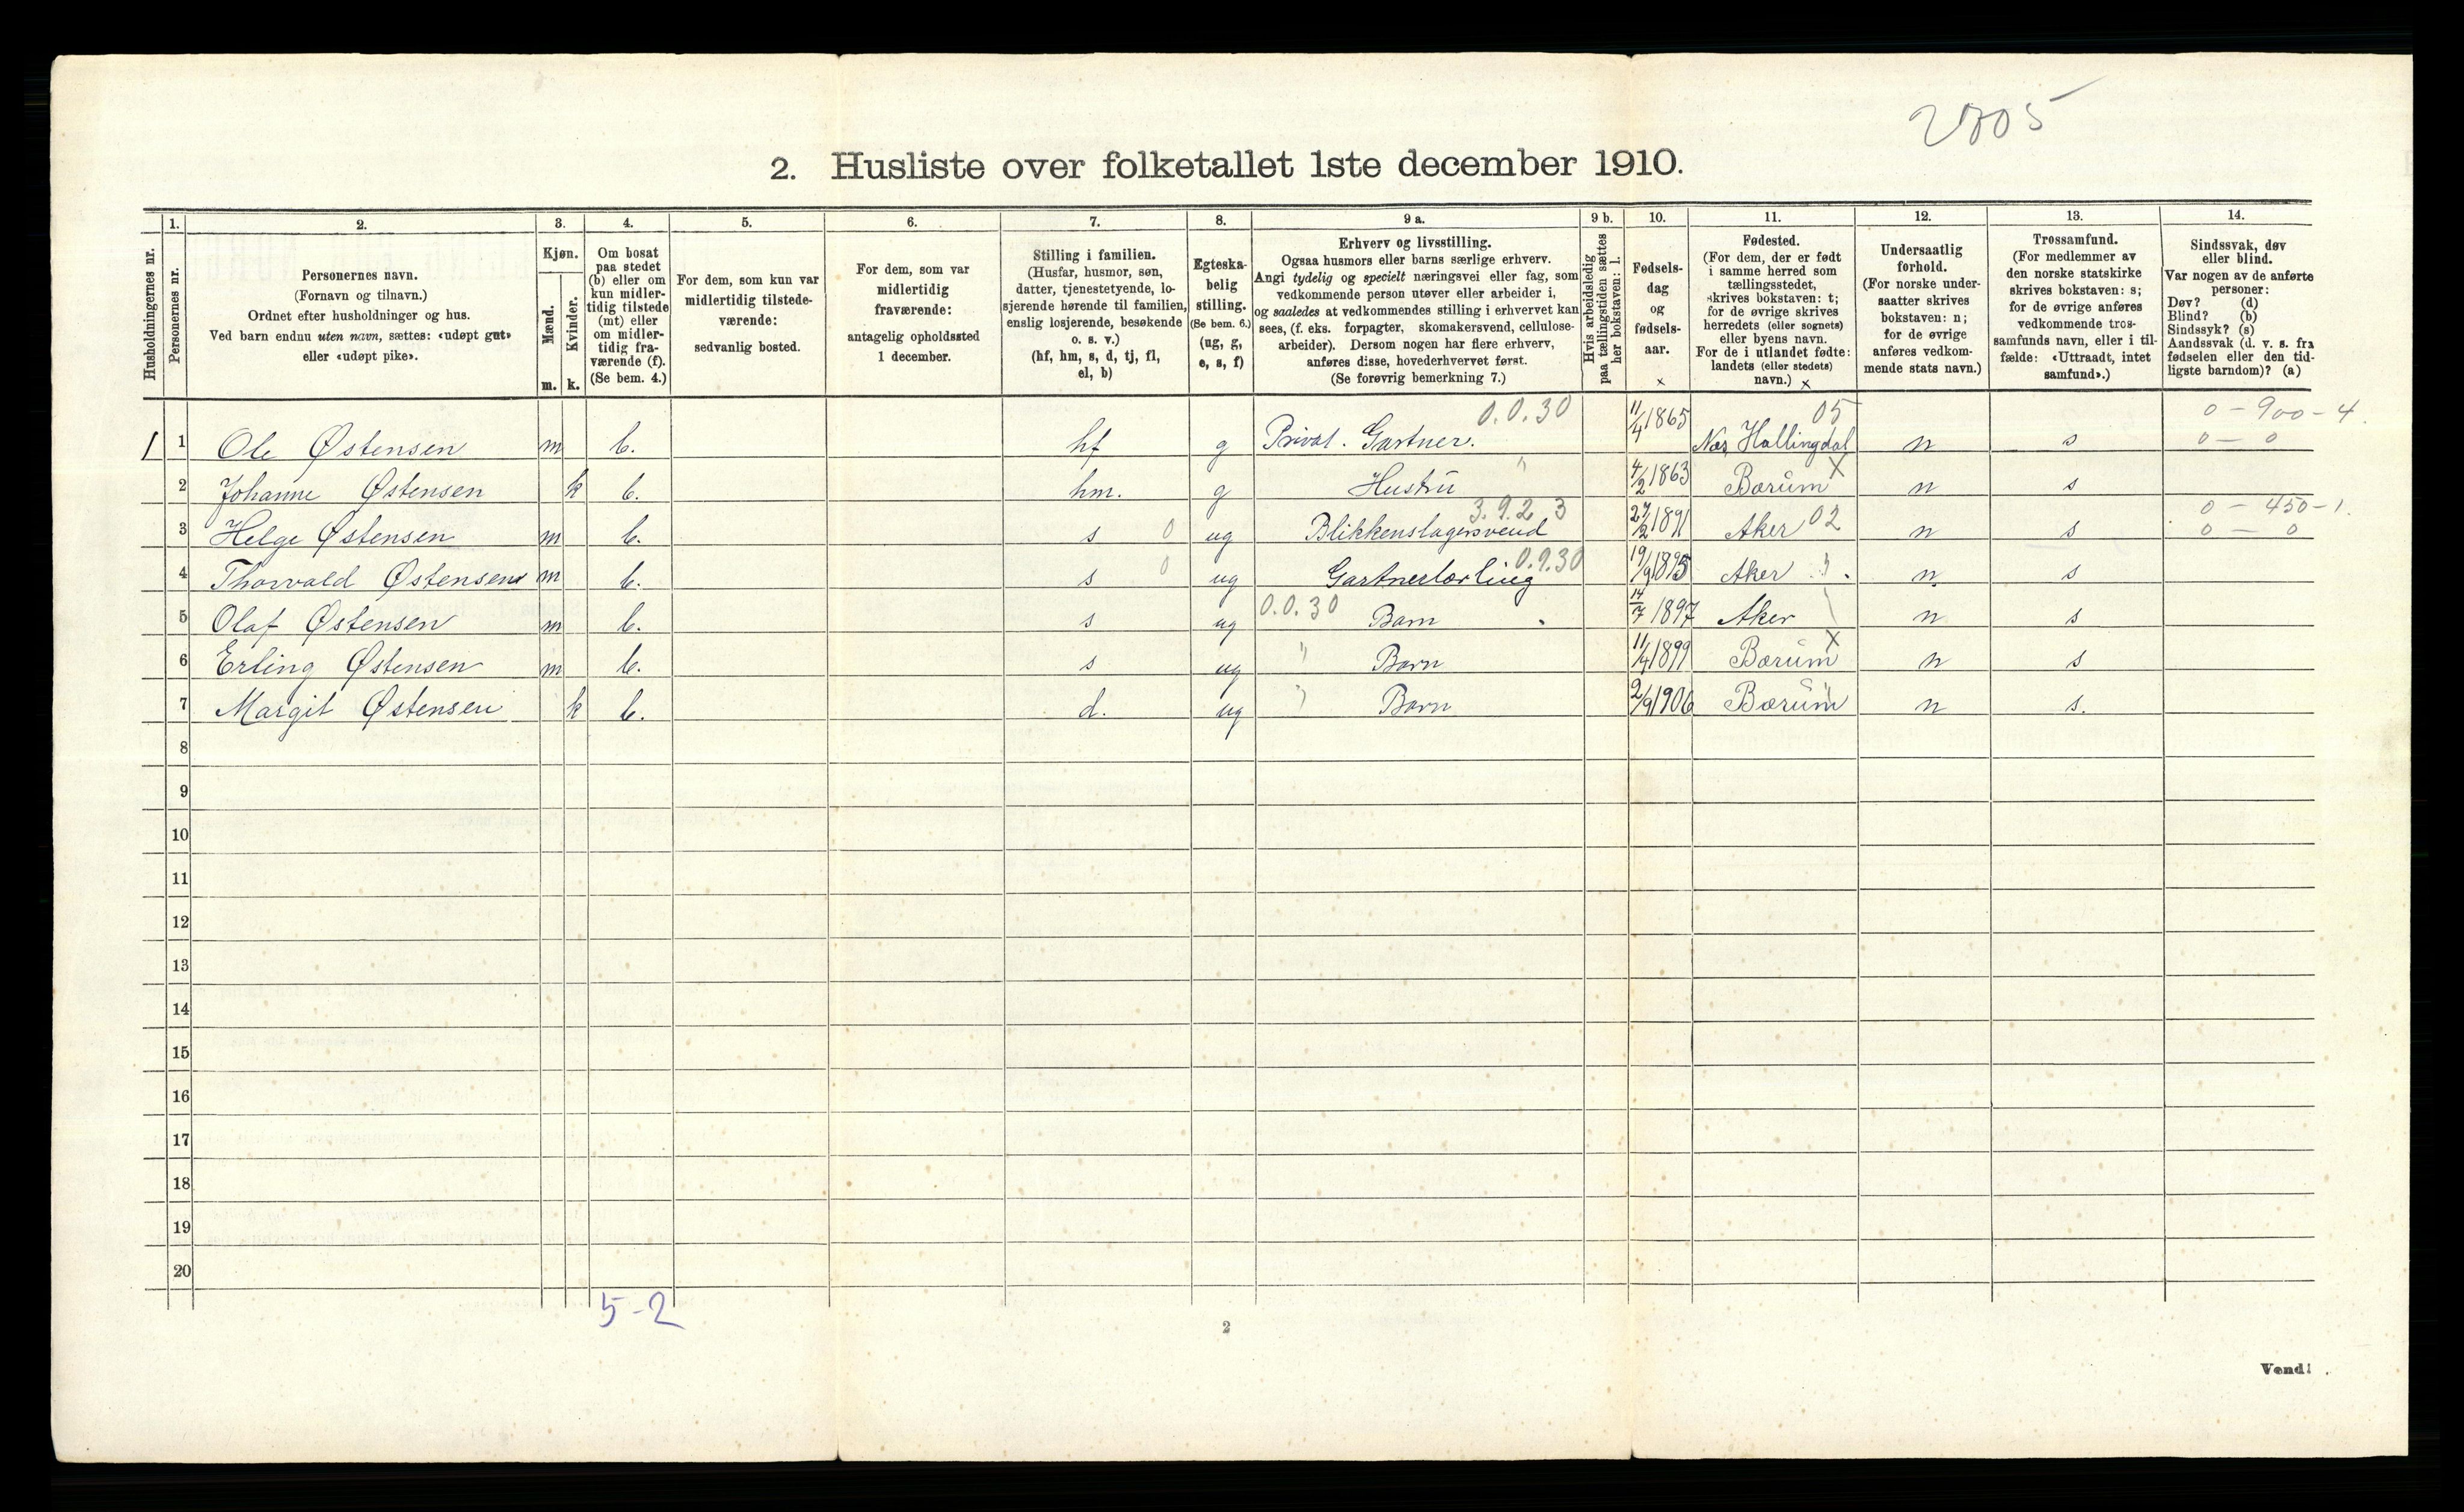 2805
2. Husliste over folketallet 1ste december 1910.
Husholdningernes nr.
1.
Personernes nr.
2.
Personernes navn.
(Fornavn og tilnavn.)
Ordnet efter husholdninger og hus.
Ved barn endnu uten navn, sættes: «udøpt gut»
eller «udøpt pike».
3.
Kjøn.
Mænd.
Kvinder.
m. k.
4.
Om bosat
paa stedet
(b) eller om
kun midler-
tidig tilstede
(mt) eller
om midler-
tidig fra-
værende (f).
(Se bem. 4.)
5.
For dem, som kun var
midlertidig tilstede-
værende:
sedvanlig bosted.
6.
For dem, som var
midlertidig
fraværende:
antagelig opholdssted
1 december.
7.
Stilling i familien.
(Husfar, husmor, søn,
datter, tjenestetyende, lo-
sjerende hørende til familien,
enslig losjerende, besøkende
o. s. v.)
(hf, hm, s, d, tj, fl,
el, b)
8.
Egteska-
belig
stilling.
(Se bem. 6.)
(ug, g,
e, s, f)
9 a.
Erhverv og livsstilling.
Ogsaa husmors eller barns særlige erhverv.
Angi tydelig og specielt næringsvei eller fag, som
vedkommende person utøver eller arbeider i,
og saaledes at vedkommendes stilling i erhvervet kan
sees, (f. eks. forpagter, skomakersvend, cellulose-
arbeider). Dersom nogen har flere erhverv,
anføres disse, hovederhvervet først.
(Se forøvrig bemerkning 7.)
9 b.
Hvis arbeidsledig
paa tællingstiden sættes
her bokstaven: l.
10.
Fødsels-
dag
og
fødsels-
aar.
x
11.
Fødested.
(For dem, der er født
i samme herred som
tællingsstedet,
skrives bokstaven: t;
for de øvrige skrives
herredets (eller sognets)
eller byens navn.
For de i utlandet fødte:
landets (eller stedets)
navn.) x
12.
Undersaatlig
forhold.
(For norske under-
saatter skrives
bokstaven: n;
for de øvrige
anføres vedkom-
mende stats navn.)
13.
Trossamfund.
(For medlemmer av
den norske statskirke
skrives bokstaven: s;
for de øvrige anføres
vedkommende tros-
samfunds navn, eller i til-
fælde: «Uttraadt, intet
samfund».)
14.
Sindssvak, døv
eller blind.
Var nogen av de anførte
personer:
Døv? (d)
Blind? (b)
Sindssyk? (s)
Aandssvak (d. v. s. fra
fødselen eller den tid-
ligste barndom)? (a)
0.0.30 05 0 - 900 - 4.
1 1 Ole Østensen m b. hf g Privat. Gartner. 11/4 1865 Næs Hallingdal n s 0 - 0
2 Johanne Østensen k b. hm. g Hustru " 4/2 1863 Bærum X n s
3.9.2 3 0 - 450 - 1.
3 Helge Østensen m b. s 0 ug Blikkenslagersvend 27/2 1891 Aker 02 n s 0 - 0
4 Thorvald Østensen m b. s 0 ug Gartnerlærling 0.9.30 19/9 1895 Aker " n s
5 Olaf Østensen m b. s ug 0.0.30 Barn 14/7 1897 Aker n s
6 Erling Østensen m b. s ug " Barn 11/4 1899 Bærum X n s
7 Margit Østensen k b. d. ug " Barn 2/9 1906 Bærum n s.
8
9
10
11
12
13
14
15
16
17
18
19
20
5-2
2
Vend!